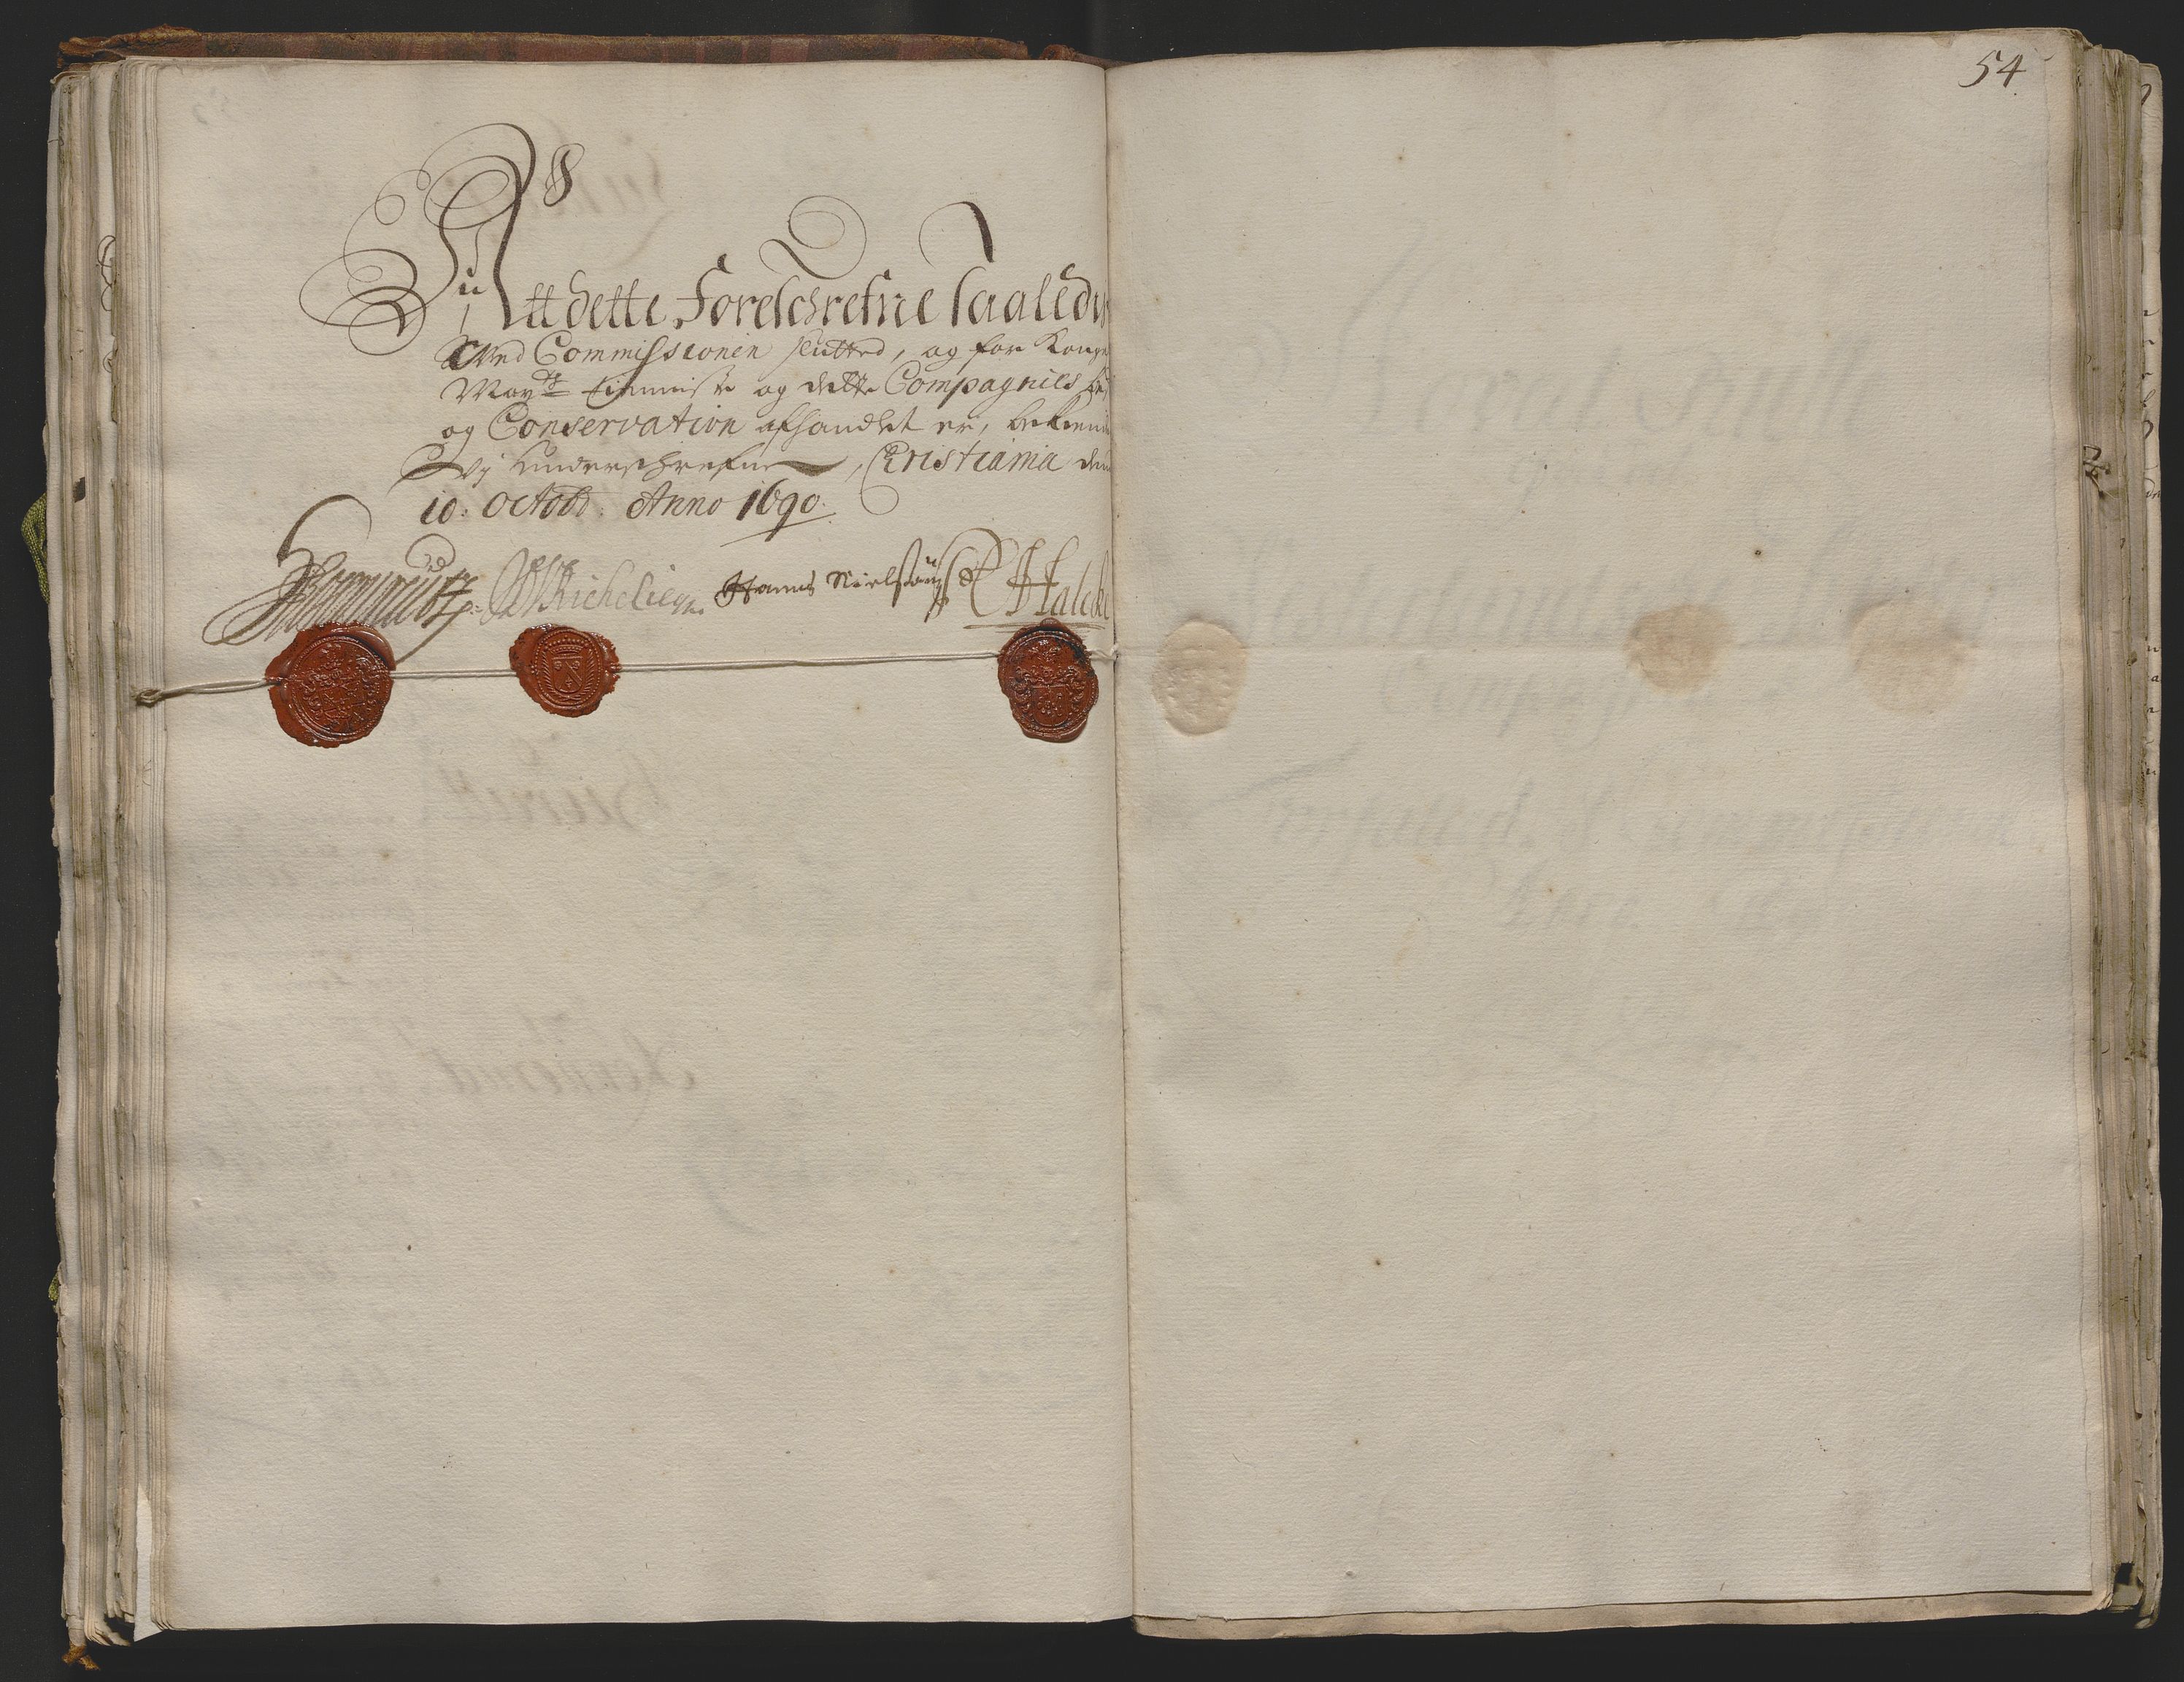 54
Att dette Foreschrefne saaledis
Ved Commissionen slutted, og for Kong
May:ts tienniste og dette Compagnies
og Conservation afhandlet er, bekiende
Vj underschrefne, Cristiania den
10: Octobr: Anno 1690.
WRichelieu Hanns Nielssøn